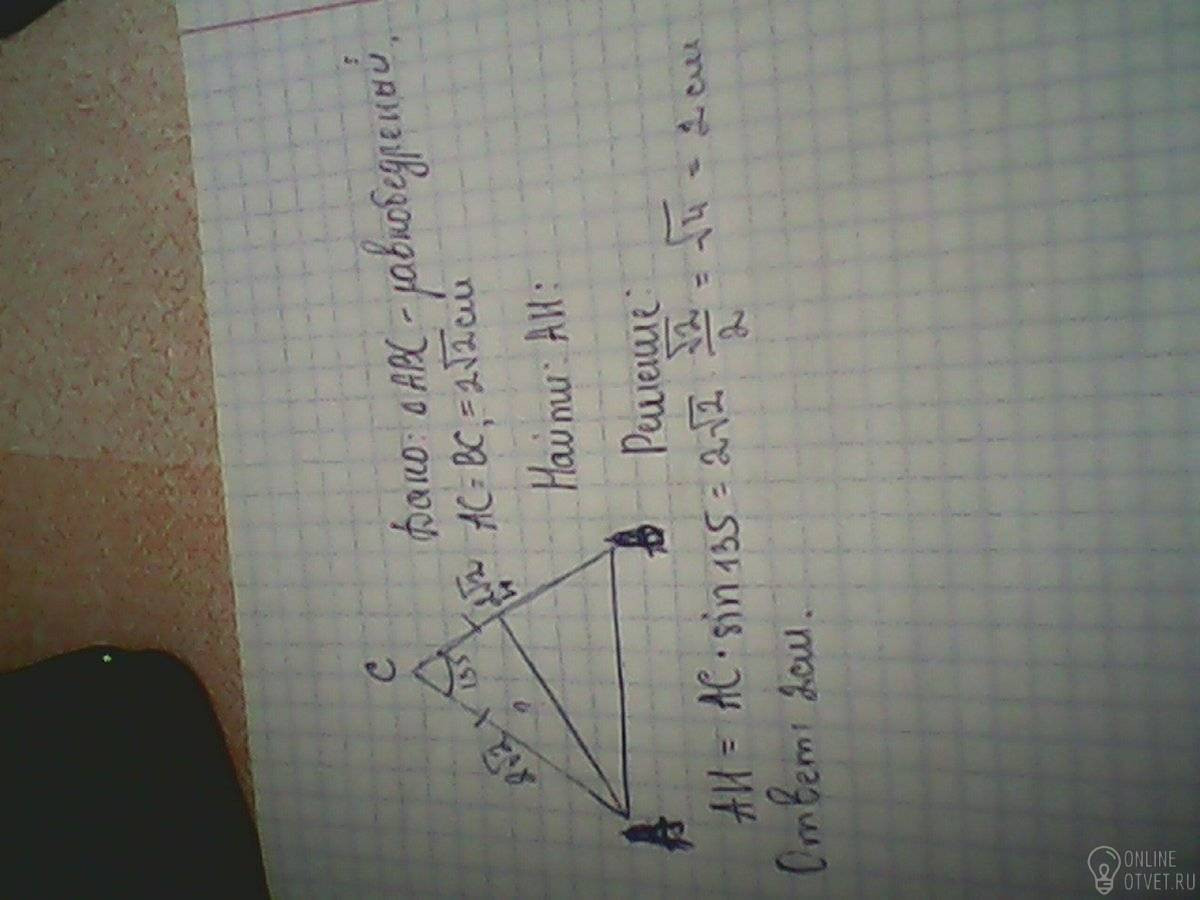 Дано: △ABC - равнобедреный.
AC = BC, = 2√2 см
Найти: AH:
C
135
2√2
2√2
?
H
A
B
Решение:
AH = AC · sin 135 = 2√2 · √2/2 = √4 = 2 см
Ответ: 2см.
ONLINE
OTVET.RU